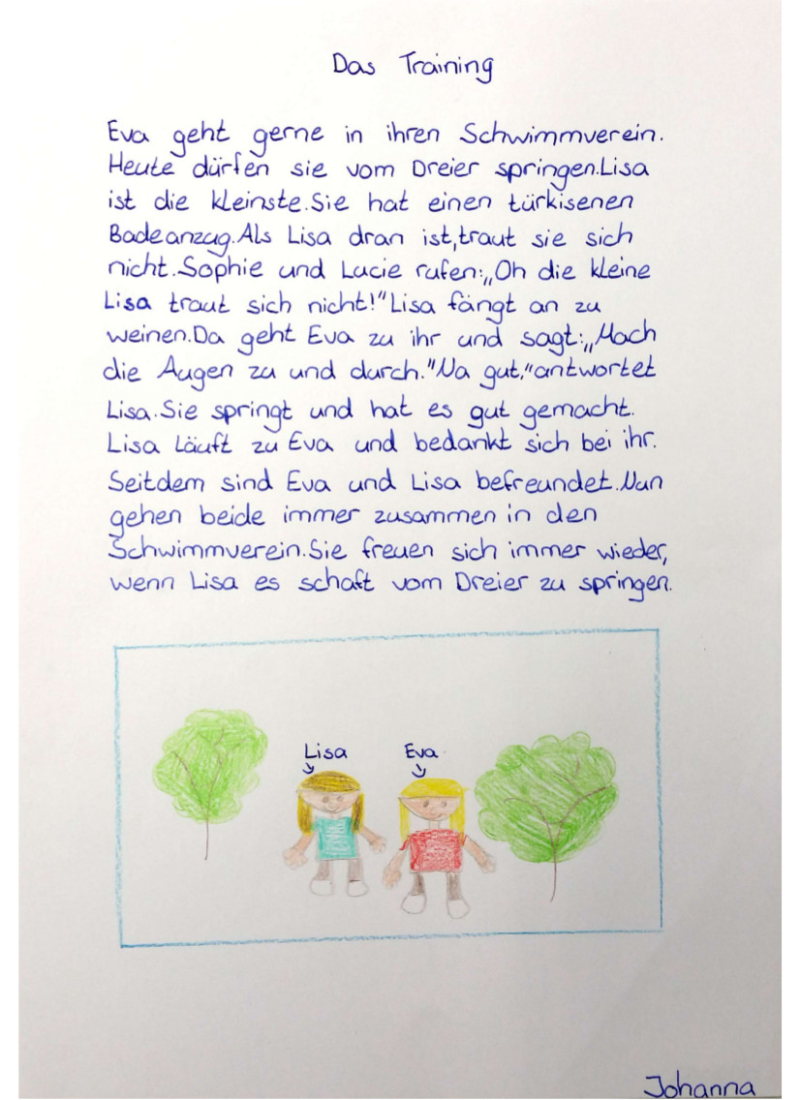 Das Training
Eva geht gerne in ihren Schwimmverein.
Heute dürfen sie vom Dreier springen.Lisa
ist die kleinste.Sie hat einen türkisenen
Badeanzug.Als Lisa dran ist,traut sie sich
nicht.Sophie und Lucie rufen:„Oh die kleine
Lisa traut sich nicht!"Lisa fängt an zu
weinen.Da geht Eva zu ihr und sagt:„Mach
die Augen zu und durch."Na gut,"antwortet
Lisa.Sie springt und hat es gut gemacht.
Lisa läuft zu Eva und bedankt sich bei ihr.
Seitdem sind Eva und Lisa befreundet.Nun
gehen beide immer zusammen in den
Schwimmverein.Sie freuen sich immer wieder,
wenn Lisa es schaft vom Dreier zu springen.
Lisa Eva
Johanna